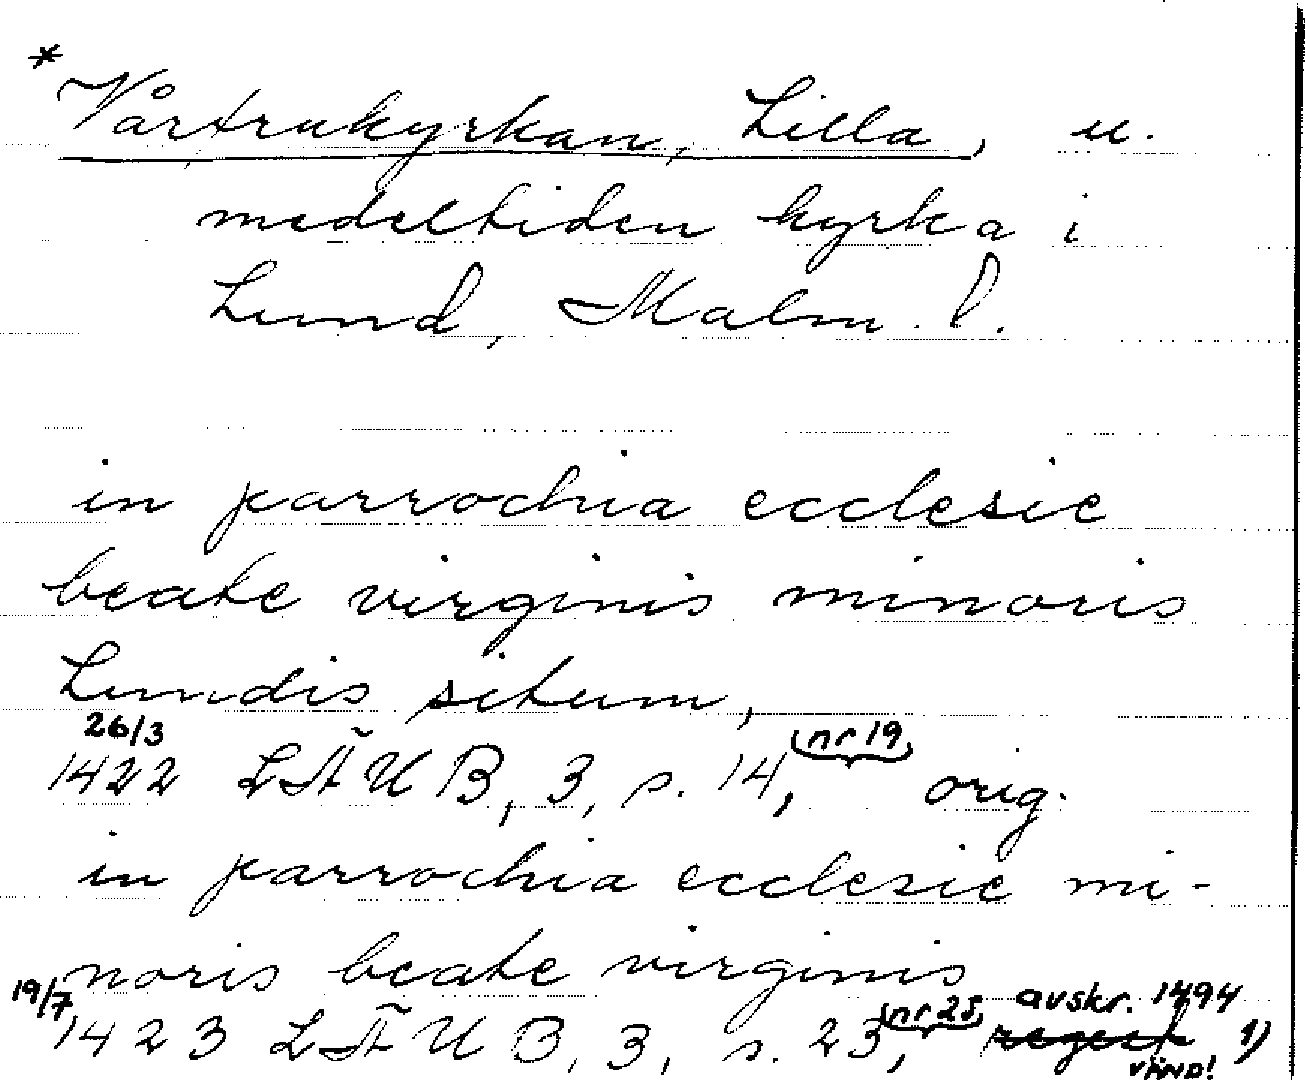 * Vårfrukyrkan, Lilla, u.
medeltiden kyrka i
Lund, Malm. l.
in parrochia ecclesie
beate virginis minoris
Lundis situm,
26/3
1422 LÄUB, 3, s. 14, (nr 19) orig.
in parrochia ecclesie mi-
noris beate virginis
19/7 avskr. 1494
1423 LÄUB, 3, s. 23, (nr 25) regest 1)
VÄND!